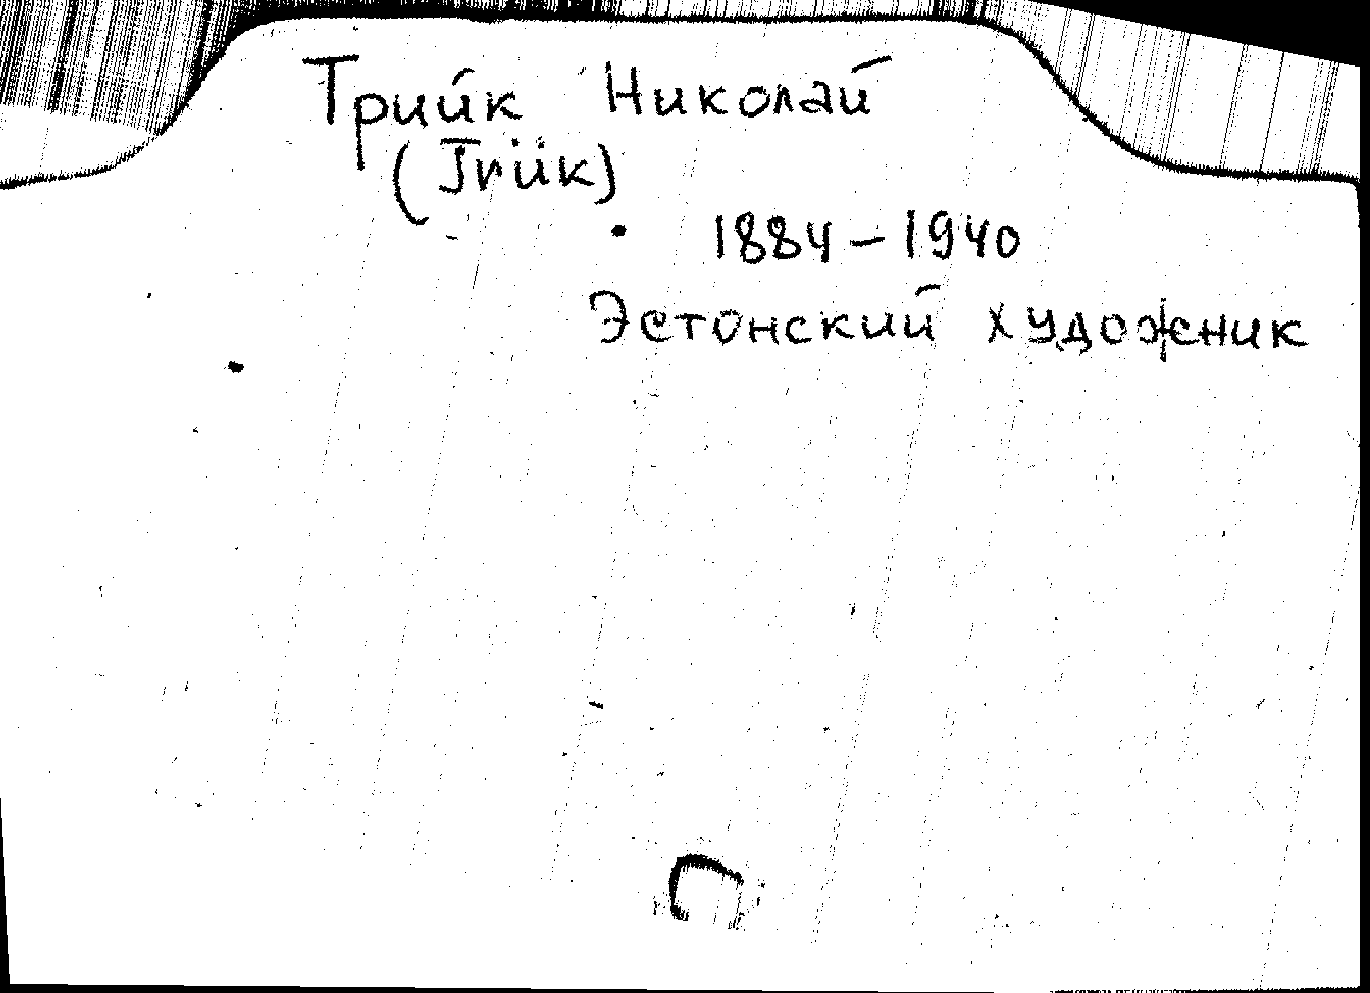 Трийк Николай
(Triik)
1884 – 1940
Эстонский художник